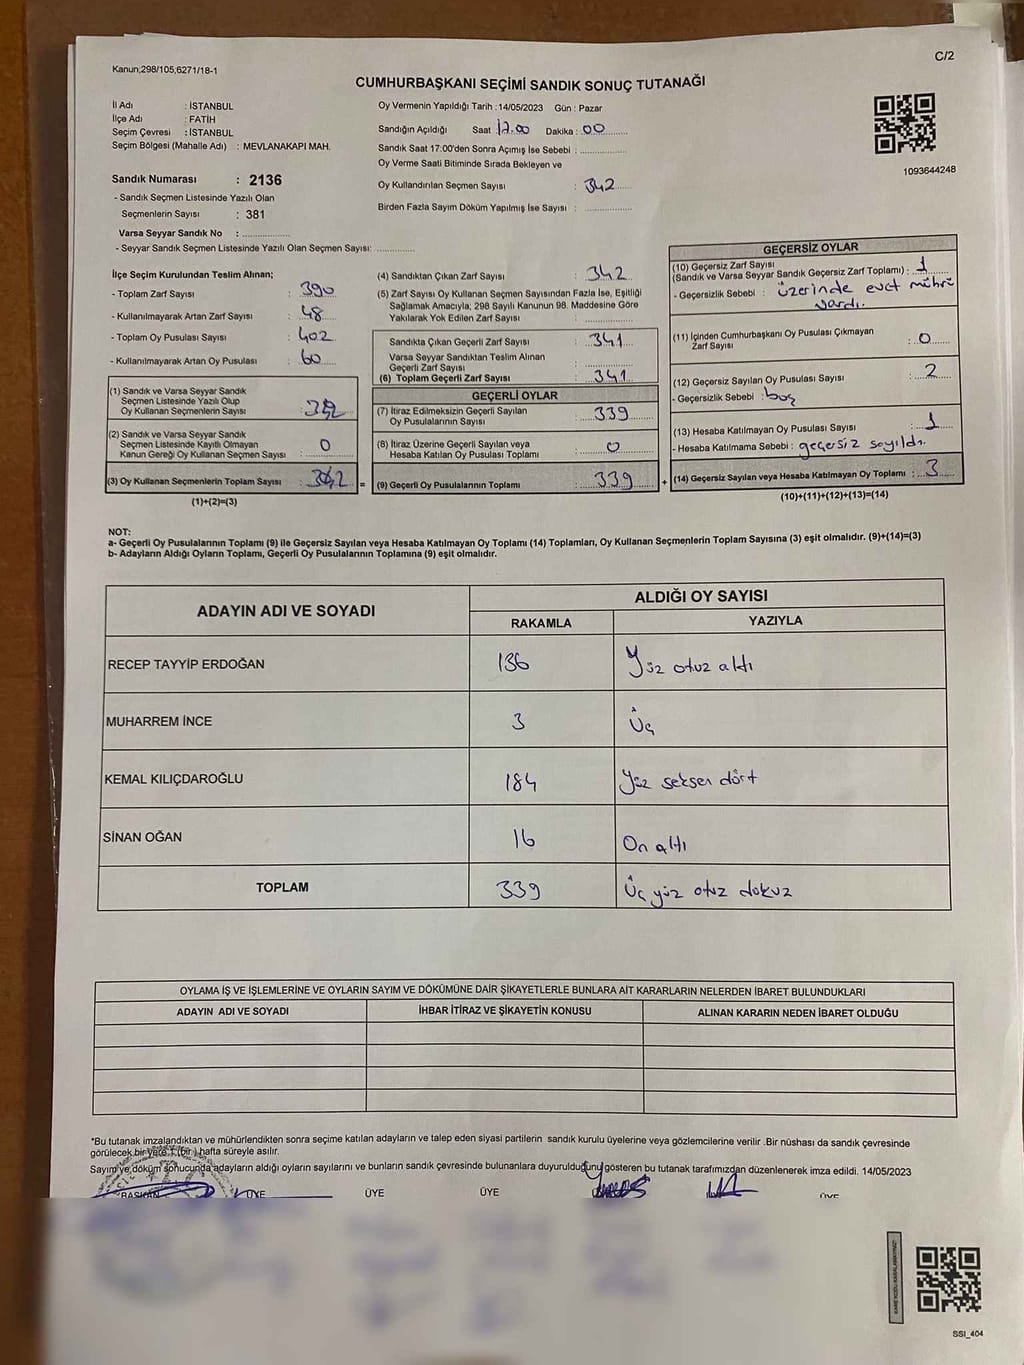 Kanun;298/105;6271/18-1
C/2
CUMHURBAŞKANI SEÇİMİ SANDIK SONUÇ TUTANAĞI
İl Adı : İSTANBUL
İlçe Adı : FATİH
Seçim Çevresi : İSTANBUL
Seçim Bölgesi (Mahalle Adı) : MEVLANAKAPI MAH.
Sandık Numarası : 2136
- Sandık Seçmen Listesinde Yazılı Olan
Seçmenlerin Sayısı : 381
Varsa Seyyar Sandık No :
- Seyyar Sandık Seçmen Listesinde Yazılı Olan Seçmen Sayısı:
Oy Vermenin Yapıldığı Tarih :14/05/2023 Gün : Pazar
Sandığın Açıldığı Saat 17.00 Dakika : 00
Sandık Saat 17:00'den Sonra Açımış İse Sebebi :
Oy Verme Saati Bitiminde Sırada Bekleyen ve
Oy Kullandırılan Seçmen Sayısı : 342
Birden Fazla Sayım Döküm Yapılmış İse Sayısı :
1093644248
İlçe Seçim Kurulundan Teslim Alınan;
- Toplam Zarf Sayısı : 390
- Kullanılmayarak Artan Zarf Sayısı : 48
- Toplam Oy Pusulası Sayısı : 402
- Kullanılmayarak Artan Oy Pusulası : 60
(1) Sandık ve Varsa Seyyar Sandık
Seçmen Listesinde Yazılı Olup
Oy Kullanan Seçmenlerin Sayısı :
(2) Sandık ve Varsa Seyyar Sandık
Seçmen Listesinde Kayıtlı Olmayan
Kanun Gereği Oy Kullanan Seçmen Sayısı : 0
(3) Oy Kullanan Seçmenlerin Toplam Sayısı : 342 =
(1)+(2)=(3)
(4) Sandıktan Çıkan Zarf Sayısı : 342
(5) Zarf Sayısı Oy Kullanan Seçmen Sayısından Fazla İse, Eşitliği
Sağlamak Amacıyla; 298 Sayılı Kanunun 98. Maddesine Göre
Yakılarak Yok Edilen Zarf Sayısı :
Sandıkta Çıkan Geçerli Zarf Sayısı : 341
Varsa Seyyar Sandıktan Teslim Alınan
Geçerli Zarf Sayısı :
(6) Toplam Geçerli Zarf Sayısı : 341
GEÇERLİ OYLAR
(7) İtiraz Edilmeksizin Geçerli Sayılan
Oy Pusulalarının Sayısı : 339
(8) İtiraz Üzerine Geçerli Sayılan veya
Hesaba Katılan Oy Pusulası Toplamı : 0
(9) Geçerli Oy Pusulalarının Toplamı : 339 +
GEÇERSİZ OYLAR
(10) Geçersiz Zarf Sayısı
(Sandık ve Varsa Seyyar Sandık Geçersiz Zarf Toplamı) : 1
- Geçersizlik Sebebi : üzerinde evet mührü
vardı.
(11) İçinden Cumhurbaşkanı Oy Pusulası Çıkmayan
Zarf Sayısı : 0
(12) Geçersiz Sayılan Oy Pusulası Sayısı : 2
- Geçersizlik Sebebi : boş
(13) Hesaba Katılmayan Oy Pusulası Sayısı : 1
- Hesaba Katılmama Sebebi : geçersiz sayıldı.
(14) Geçersiz Sayılan veya Hesaba Katılmayan Oy Toplamı : 3
(10)+(11)+(12)+(13)=(14)
NOT:
a- Geçerli Oy Pusulalarının Toplamı (9) ile Geçersiz Sayılan veya Hesaba Katılmayan Oy Toplamı (14) Toplamları, Oy Kullanan Seçmenlerin Toplam Sayısına (3) eşit olmalıdır. (9)+(14)=(3)
b- Adayların Aldığı Oyların Toplamı, Geçerli Oy Pusulalarının Toplamına (9) eşit olmalıdır.
ADAYIN ADI VE SOYADI ALDIĞI OY SAYISI
RAKAMLA YAZIYLA
RECEP TAYYİP ERDOĞAN 136 Yüz otuz altı
MUHARREM İNCE 3 Üç
KEMAL KILIÇDAROĞLU 184 Yüz seksen dört
SİNAN OĞAN 16 On altı
TOPLAM 339 Üç yüz otuz dokuz
OYLAMA İŞ VE İŞLEMLERİNE VE OYLARIN SAYIM VE DÖKÜMÜNE DAİR ŞİKAYETLERLE BUNLARA AİT KARARLARIN NELERDEN İBARET BULUNDUKLARI
ADAYIN ADI VE SOYADI İHBAR İTİRAZ VE ŞİKAYETİN KONUSU ALINAN KARARIN NEDEN İBARET OLDUĞU
*Bu tutanak imzalandıktan ve mühürlendikten sonra seçime katılan adayların ve talep eden siyasi partilerin sandık kurulu üyelerine veya gözlemcilerine verilir .Bir nüshası da sandık çevresinde
görülecek bir yere 1 (bir ) hafta süreyle asılır.
Sayım ve döküm sonucunda adayların aldığı oyların sayılarını ve bunların sandık çevresinde bulunanlara duyurulduğunu gösteren bu tutanak tarafımızdan düzenlenerek imza edildi. 14/05/2023
BAŞKAN ÜYE ÜYE ÜYE ÜYE
SSI_404